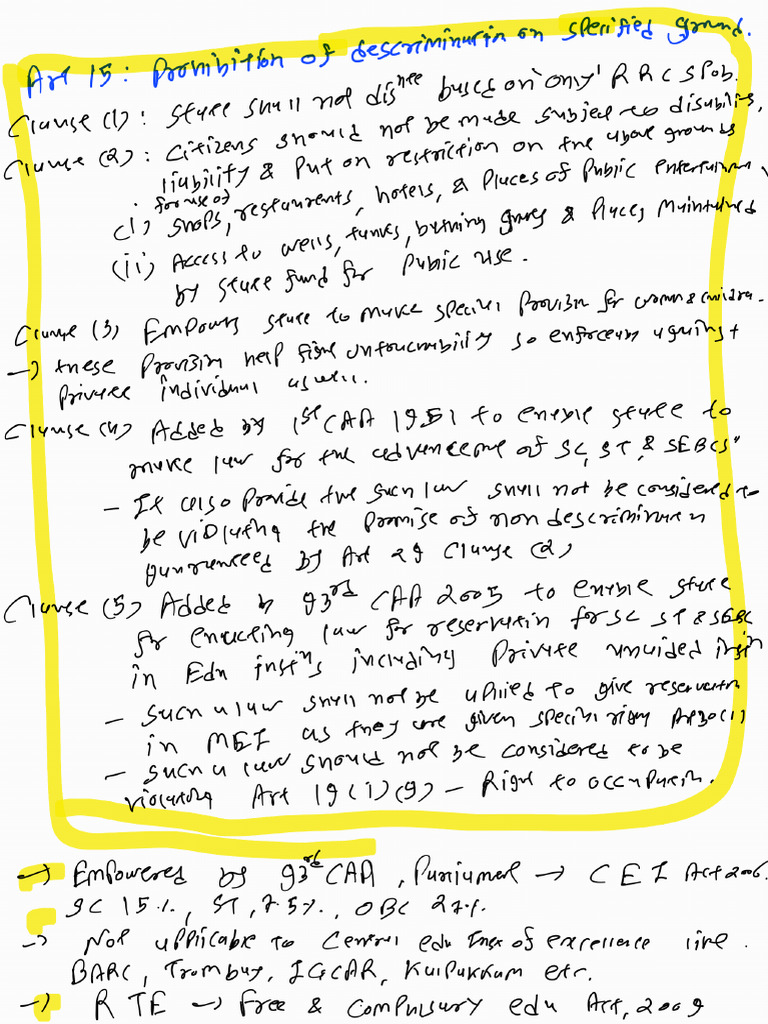 Art 15: Prohibition of descrimination on specified ground.
Clause (1): State shall not dis^nee based on "only" RRCSPoB.
Clause (2): Citizens should not be made subject to disability,
liability & put on restriction on the above grounds
for use of
(i) shops, restaurents, hotels, & Places of Public entertainmen
(ii) Access to wells, tanks, bathing ghats & Places maintained
by state fund for Public use.
Clause (3) Empowers state to make special Provision for women & children.
→ these Provision help fight untouchability so enforceable against
private individual as well.
Clause (4) Added by 1st CAA 1951 to enable state to
make law for the advancement of SC, ST, & SEBCs"
- It also Provide the such law shall not be considered to
be violating the Promise of non descrimination
guaranteed by Art 29 Clause (2)
Clause (5) Added by 93rd CAA 2005 to enable state
for enacting law for reservation for SC ST & SEBC
in Edu inst^ns including Private unaided instn
- such a law shall not be applied to give reservation
in MEI as they are given special right Art 30(1)
- such a law should not be considered to be
violating Art 19(1)(g) - Right to occupation.
→ Empowered by 93rd CAA, Parliament → CEI Act 2006.
SC 15%, ST, 7.5%, OBC 27%.
→ Not applicable to Central edu Inst of excellence like.
BARC, Trombay, IGCAR, Kalpakkam etc.
→ RTE → Free & compulsary edu Act, 2009